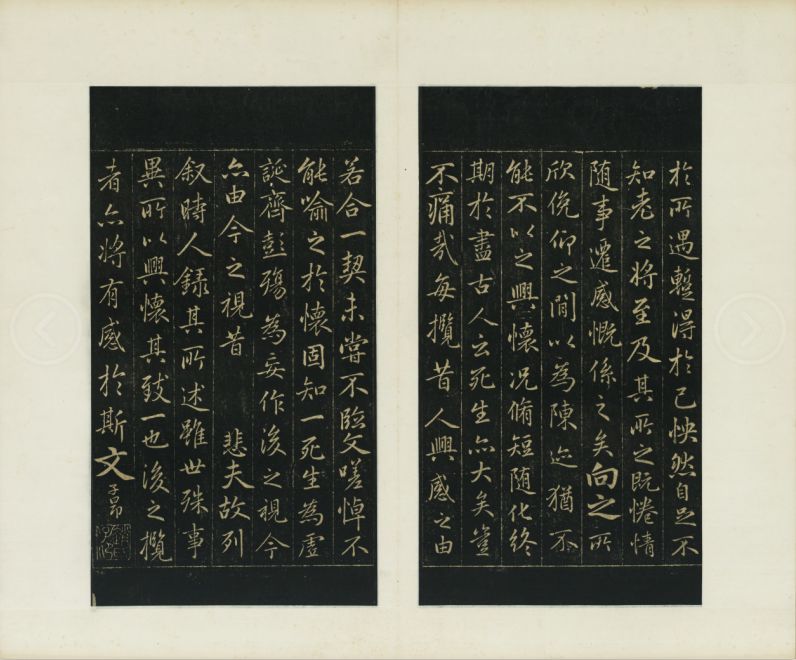 於所遇蹔得於己怏然自足不
知老之將至及其所之既惓情
隨事遷感慨係之矣向之所
欣俛仰之閒以為陳迹猶不
能不以之興懷况脩短隨化終
期於盡古人云死生亦大矣豈
不痛哉每攬昔人興感之由
若合一契未嘗不臨文嗟悼不
能喻之於懷固知一死生為虛
誕齊彭殤為妄作後之視今
亦由今之視昔 悲夫故列
叙時人錄其所述雖世殊事
異所以興懷其致一也後之攬
者亦將有感於斯文
子昂